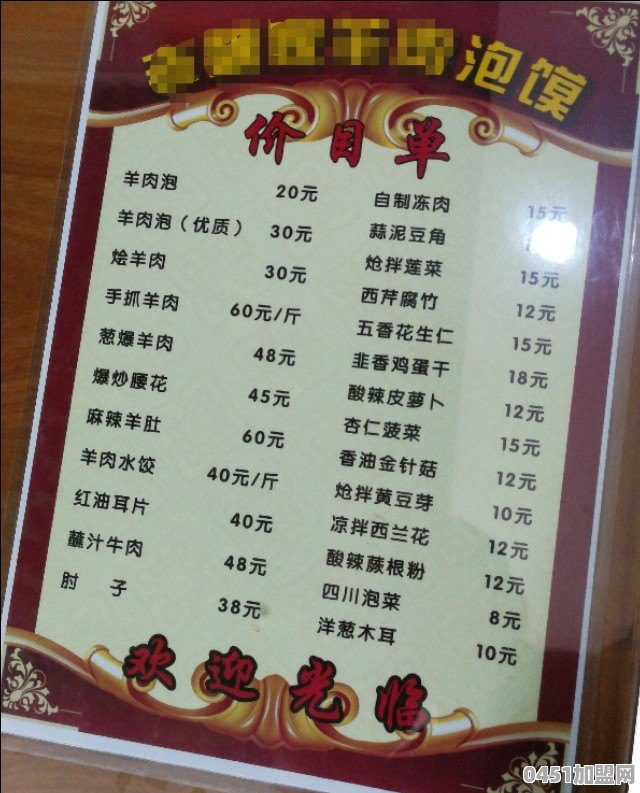 泡馍
价目单
羊肉泡 20元
羊肉泡（优质） 30元
烩羊肉 30元
手抓羊肉 60元/斤
葱爆羊肉 48元
爆炒腰花 45元
麻辣羊肚 60元
羊肉水饺 40元/斤
红油耳片 40元
蘸汁牛肉 48元
肘 子 38元
自制冻肉 15元
蒜泥豆角
炝拌莲菜 15元
西芹腐竹 12元
五香花生仁 15元
韭香鸡蛋干 18元
酸辣皮萝卜 12元
杏仁菠菜 15元
香油金针菇 12元
炝拌黄豆芽 10元
凉拌西兰花 12元
酸辣蕨根粉 12元
四川泡菜 8元
洋葱木耳 10元
欢迎光临
0451加盟网